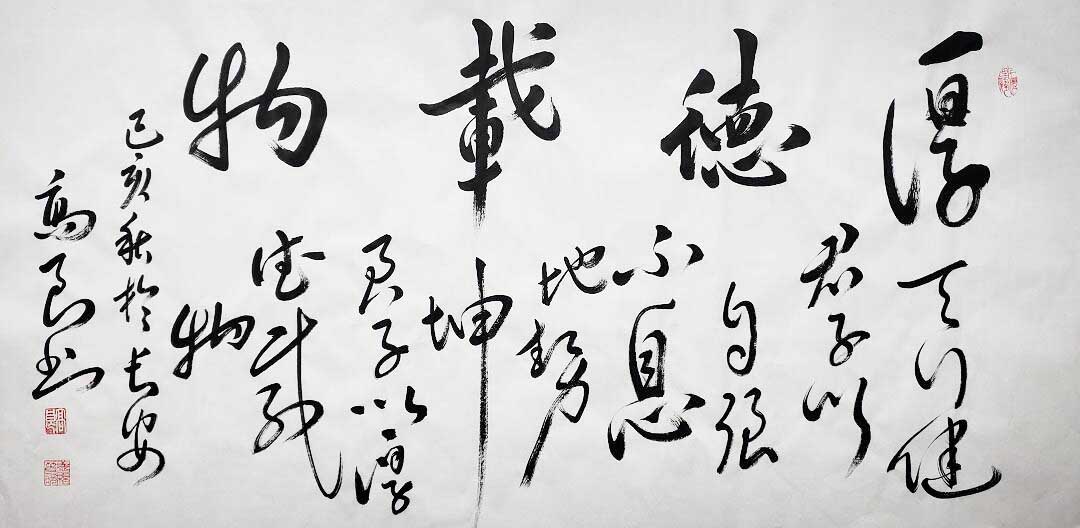 厚德載物
天行健
君子以
自强
不息
地勢
坤
君子以厚
德載
物
己亥秋於長安
高良書